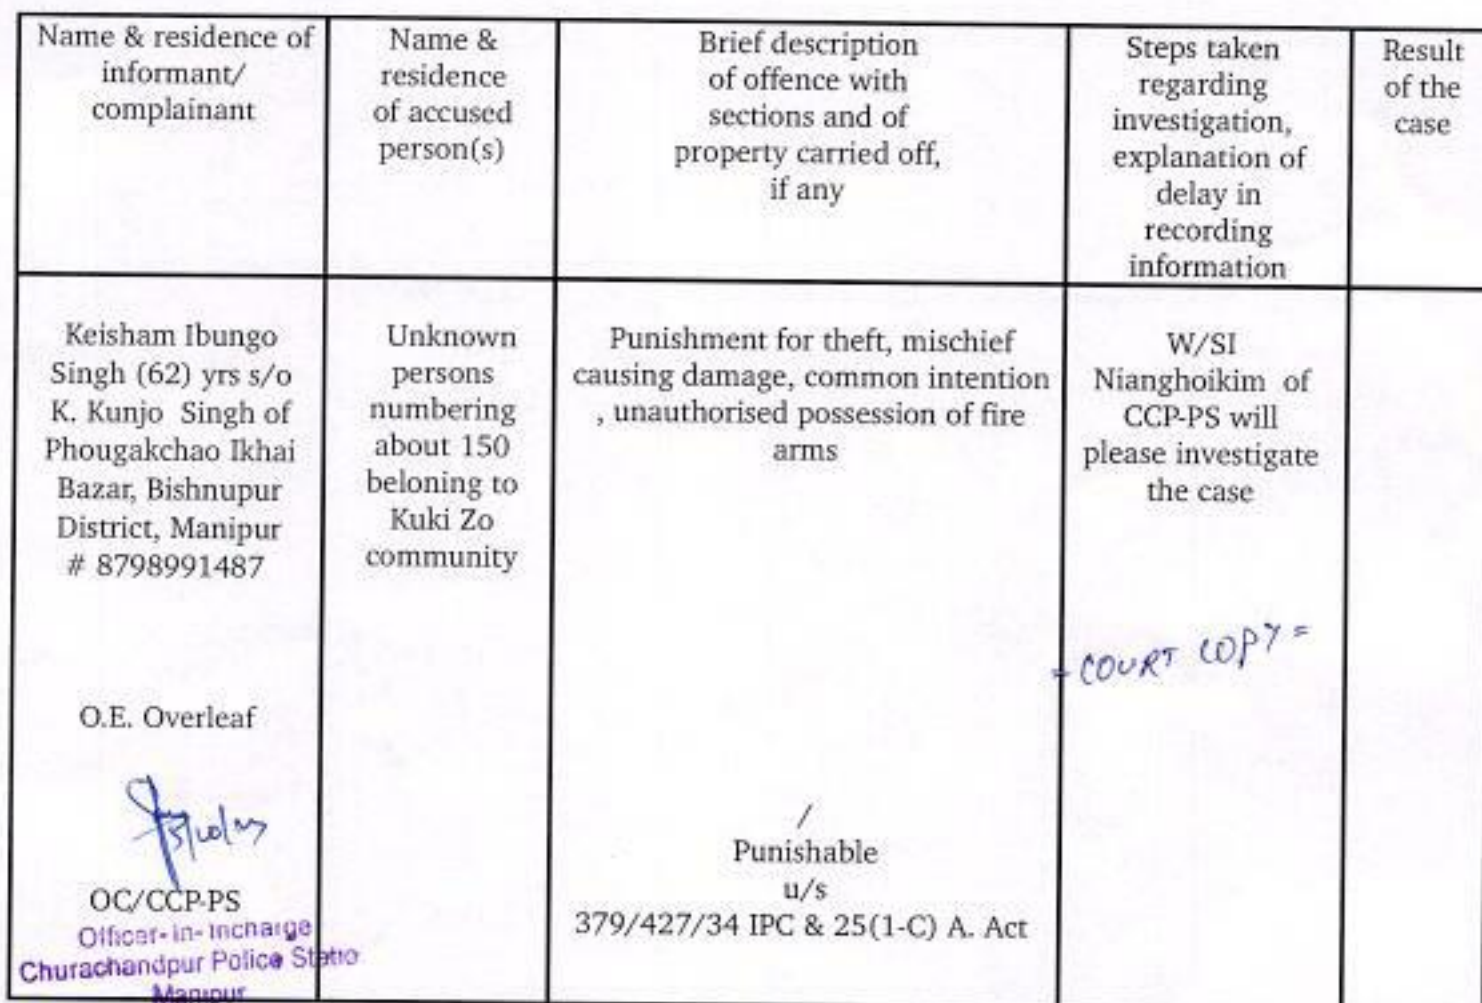 Name & residence of
informant/
complainant
Name &
residence
of accused
person(s)
Brief description
of offence with
sections and of
property carried off,
if any
Steps taken
regarding
investigation,
explanation of
delay in
recording
information
Result
of the
case
Keisham Ibungo
Singh (62) yrs s/o
K. Kunjo Singh of
Phougakchao Ikhai
Bazar, Bishnupur
District, Manipur
# 8798991487
O.E. Overleaf
OC/CCP-PS
Officer-in-Incharge
Churachandpur Police Statio
Manipur
Unknown
persons
numbering
about 150
beloning to
Kuki Zo
community
Punishment for theft, mischief
causing damage, common intention
, unauthorised possession of fire
arms
/
Punishable
u/s
379/427/34 IPC & 25(1-C) A. Act
W/SI
Nianghoikim of
CCP-PS will
please investigate
the case
= COURT COPY =